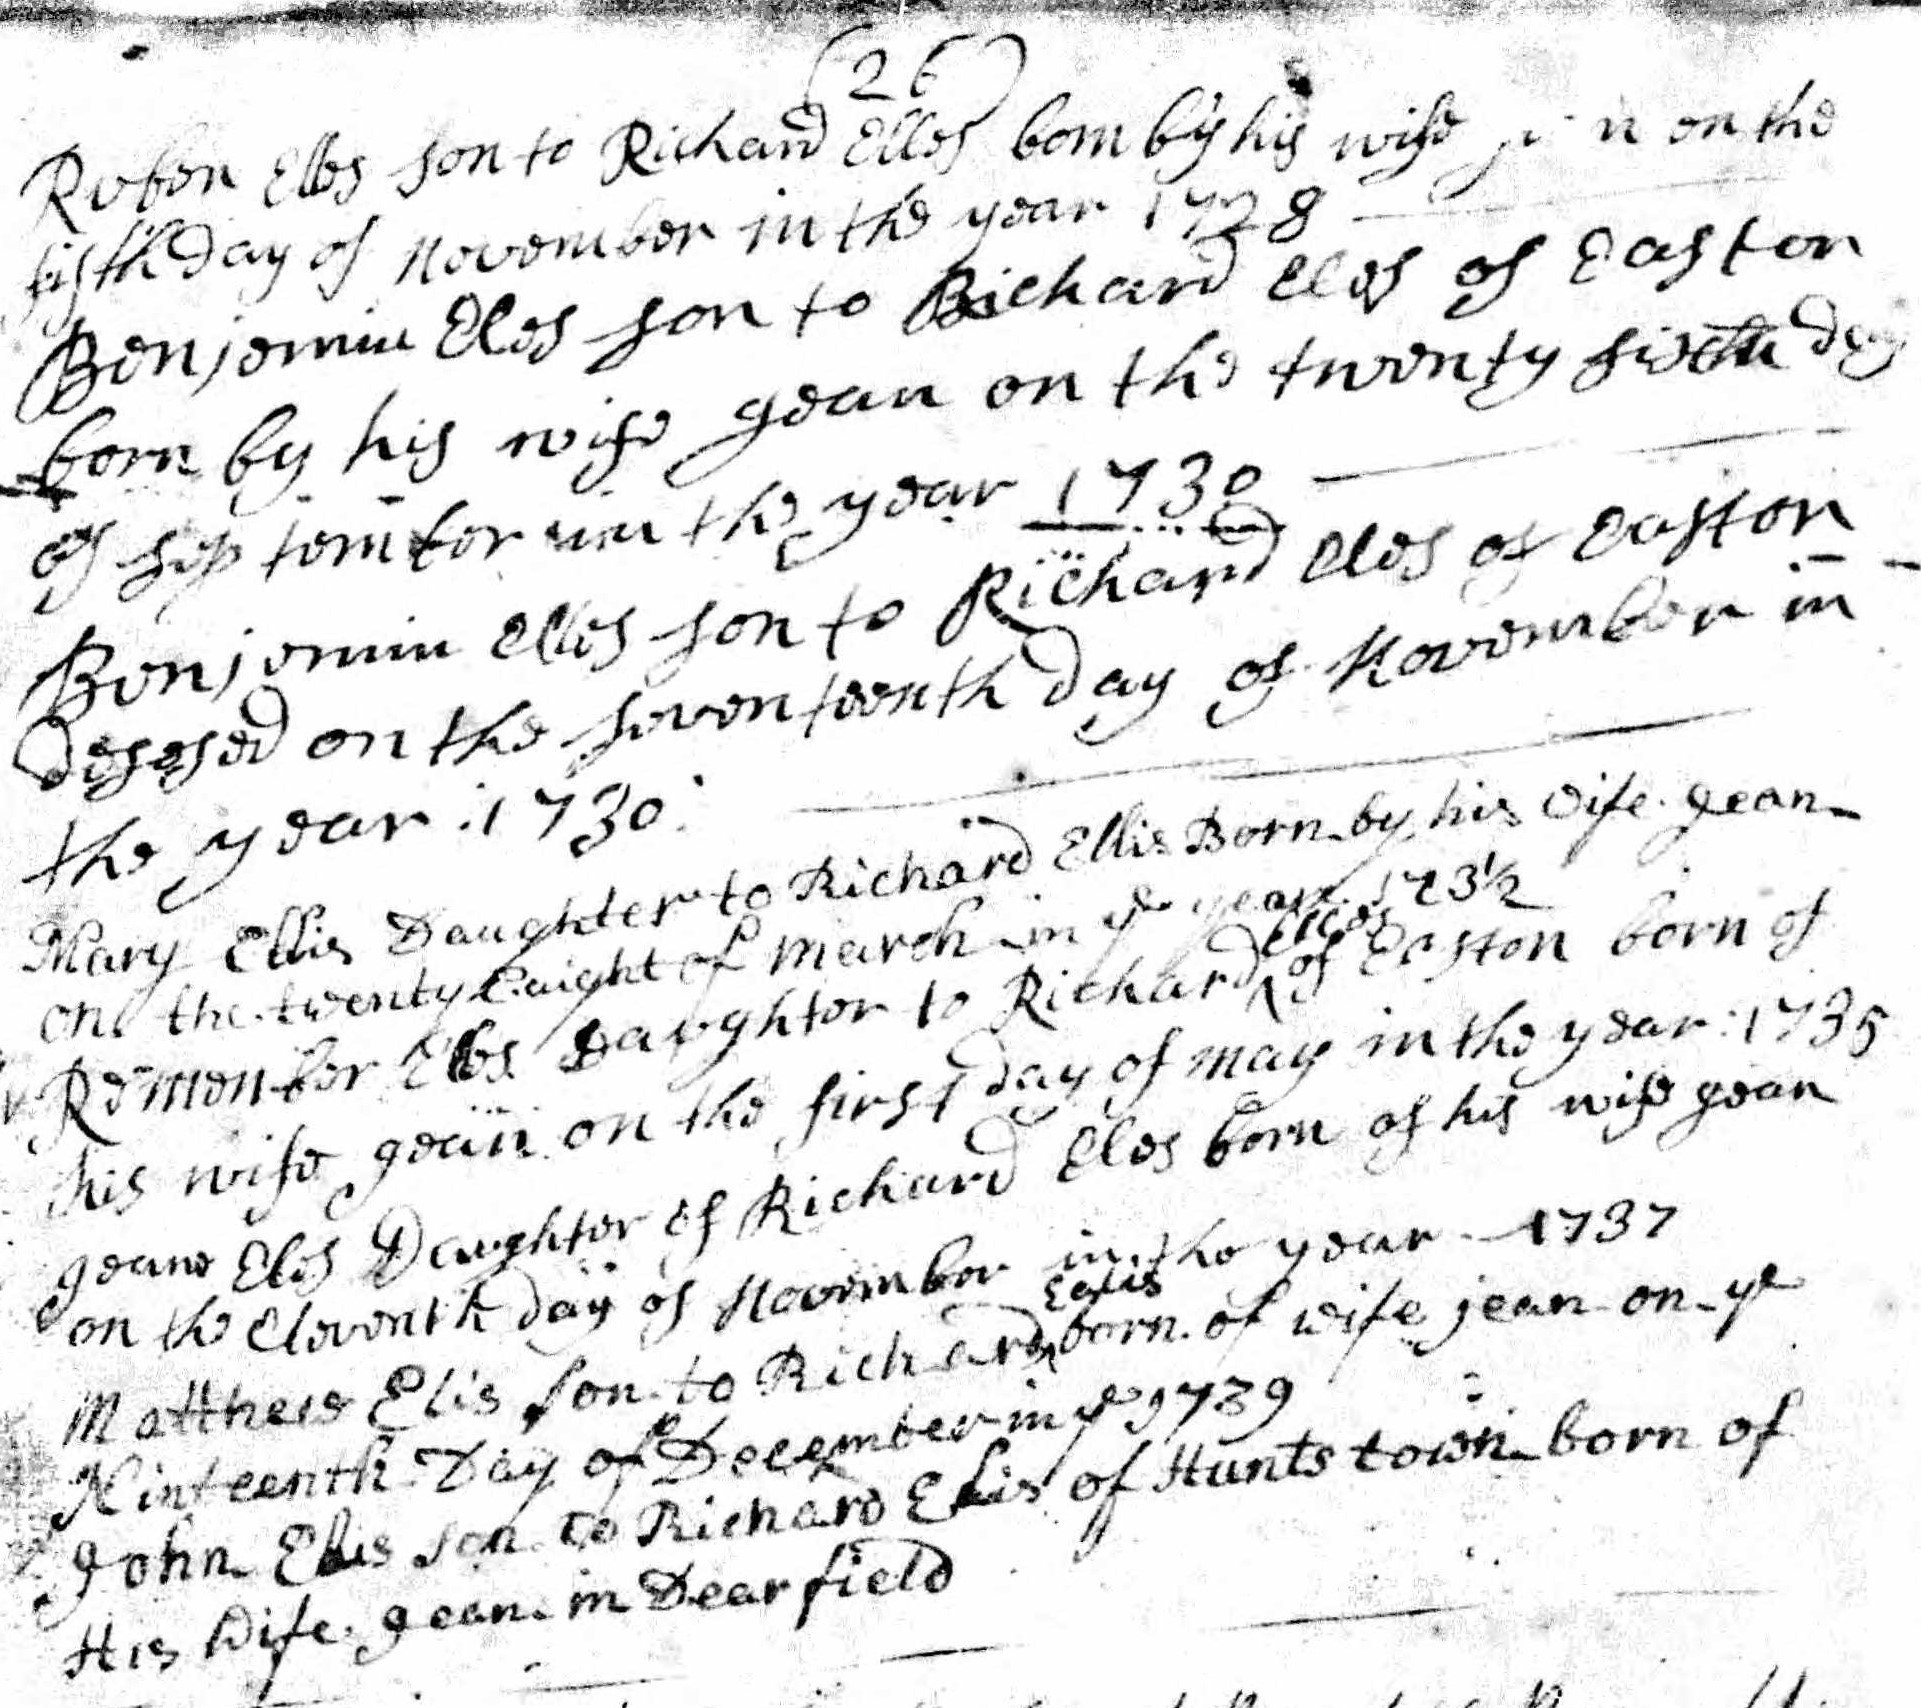 (26)
Ruben Elles son to Richard Elles born by his wife on the
fifth day of November in the year 1728
Benjemin Eles son to Richard Eles of Easton
born by his wife gean on the twenty sixth day
of september in the year 1730
Benjemin Elles son to Richard Eles of Easton
desesed on the seventeenth day of November in
the year :1730:
Mary Ellis Daughter to Richard Ellis Born by his Wife gean
on the twenty Eaight of march in ye year 173½
Remember Elles Daughter to Richard Elles of Easton born of
his wife gean on the first day of may in the year :1735
geane Eles Daughter of Richard Eles born of his wife gean
on the Eleventh day of November in the year 1737
Matthew Elis son to Richard Ealis born of wife jean on ye
Ninteenth Day of December in ye 1739
John Elis son to Richard Elis of Hunts town born of
His Wife gean in Dearfield